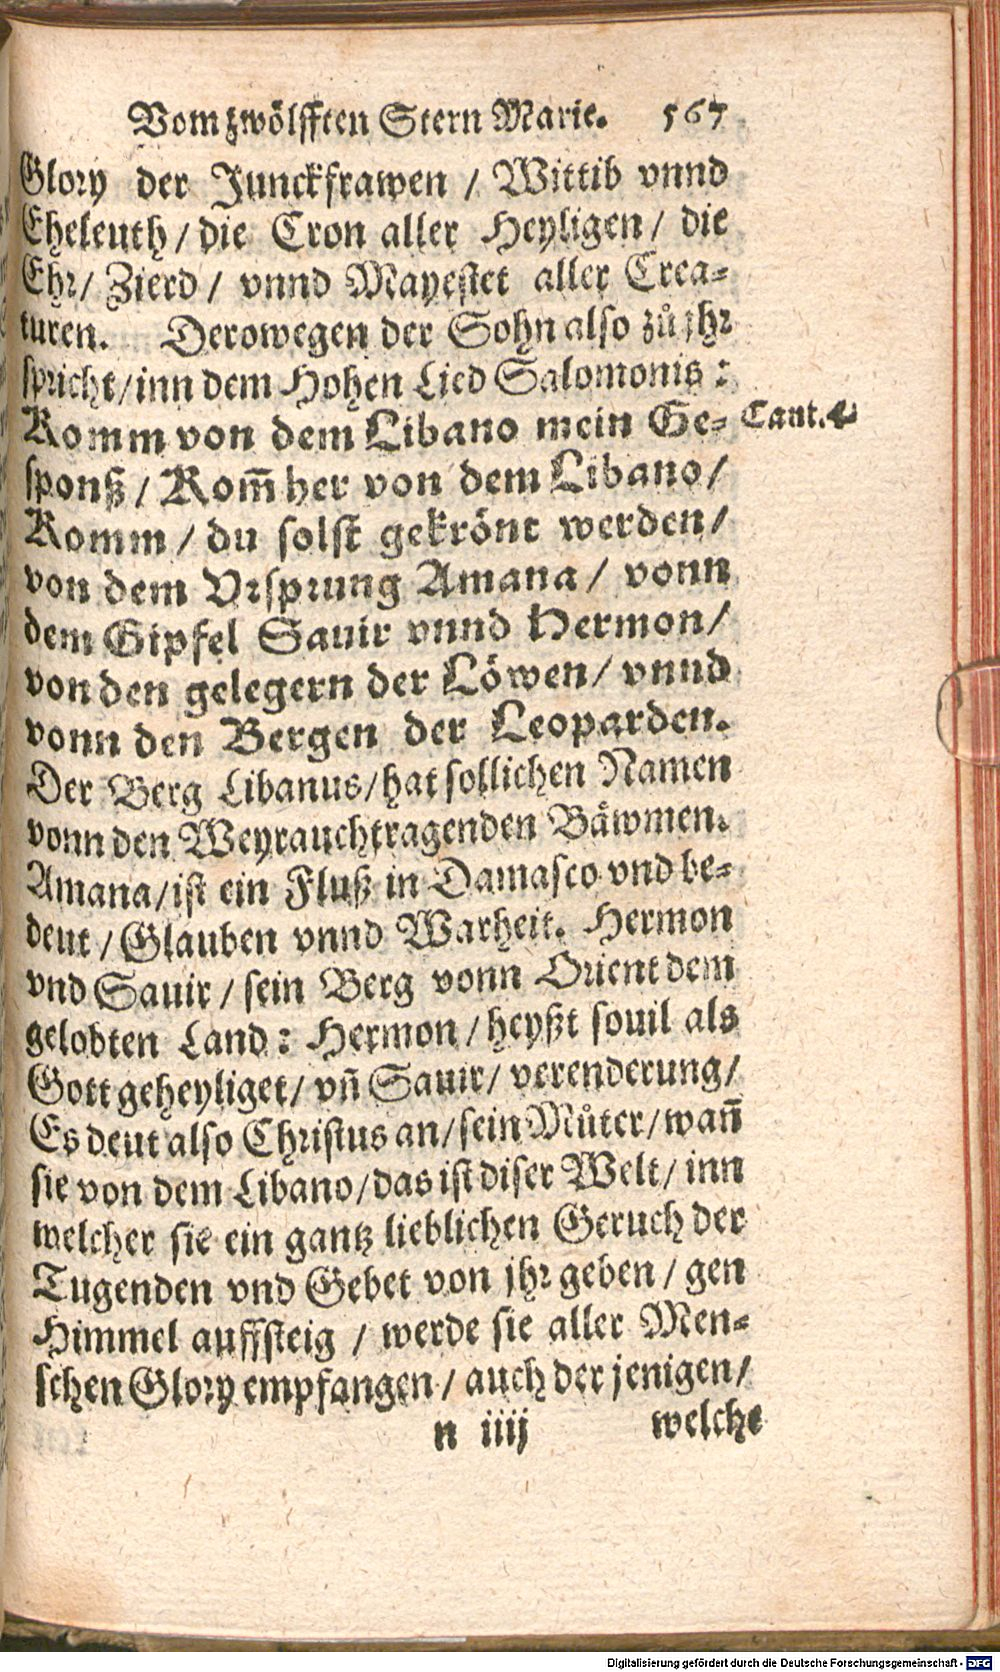 Vom zwölfften Stern Marie. 567
Glory der Junckfrawen / Wittib vnnd
Eheleuth / die Cron aller Heyligen / die
Ehr / Zierd / vnnd Mayestet aller Crea⸗
turen. Derowegen der Sohn also zů jhr
spricht / inn dem Hohen Lied Salomonis :
Komm von dem Libano mein Ge⸗
Cant. 4.
sponß / Kom̃ her von dem Libano /
Komm / du solst gekrönt werden /
von dem Vrsprung Amana / vonn
dem Gipfel Sauir vnnd Hermon /
von den gelegern der Löwen / vnnd
vonn den Bergen der Leoparden.
Der Berg Libanus / hat sollichen Namen
vonn den Weyrauchtragenden Bäwmen.
Amana / ist ein Fluß in Damasco vnd be⸗
deut / Glauben vnnd Warheit. Hermon
vnd Sauir / sein Berg vonn Orient dem
gelobten Land : Hermon / heyßt souil als
Gott geheyliget / vñ Sauir / verenderung /
Es deut also Christus an / sein Můter / wañ
sie von dem Libano / das ist diser Welt / inn
welcher sie ein gantz lieblichen Geruch der
Tugenden vnd Gebet von jhr geben / gen
Himmel auffsteig / werde sie aller Men⸗
schen Glory empfangen / auch der jenigen /
n iiij welche
Digitalisierung gefördert durch die Deutsche Forschungsgemeinschaft - DFG